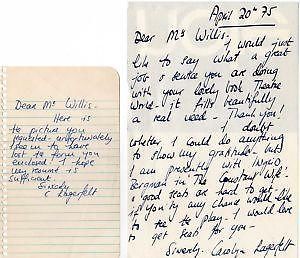 Dear Ms Willis.
Here is
the picture you
requested - unfortunately
I seem to have
lost the form you
enclosed. I hope
my name is
sufficient.
Sincerely
C Lagerfelt
April 20th 75
Dear Ms Willis.
I would just
like to say what a great
job & service you are doing
with your lovely book Theatre
World - it fills beautifully
a real need - Thank you!
I doubt
whether I could do anything
to show my gratitude - but
I am presently with Ingrid
Bergman in The Constant Wife -
& good seats are hard to get -
if you by any chance would like
to see the play - I would love
to get seats for you -
Sincerely. Carolyn Lagerfelt